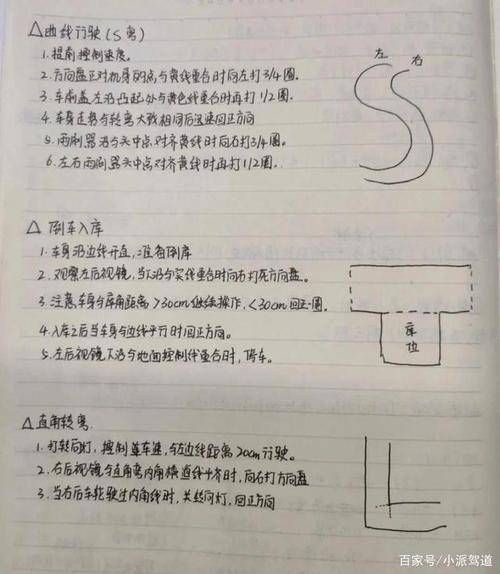 △曲线行驶(S弯)
1.提前控制速度。
2.方向盘正对机身弱点与黄线重合时向左打3/4圈.
3.车前盖左沿凸起处与黄色线重合时再打1/2圈.
4.车身走势与转弯大致相同后迅速回正方向
5.雨刷器沿与头中点对齐黄线时向右打3/4圈.
6.左右雨刷器头中点对齐黄线时再打1/2圈.
左 右
△倒车入库
1.车身沿边线开直,准备倒库
2.观察左后视镜,当下沿与实线重合时向右打死方向盘。
3.注意车身与库角距离>30cm继续操作,<30cm回正一圈.
4.入库之后当车身与边线平行时回正方向。
5.左后视镜下沿与地面控制线重合时,停车。
库位
△直角转弯
1.打转向灯,控制车速,与左边线距离20cm行驶。
2.右后视镜与直角弯内角横直线平齐时,向右打方向盘
3.当右后车轮驶过内角线时,关转向灯,回正方向
百家号/小派驾道